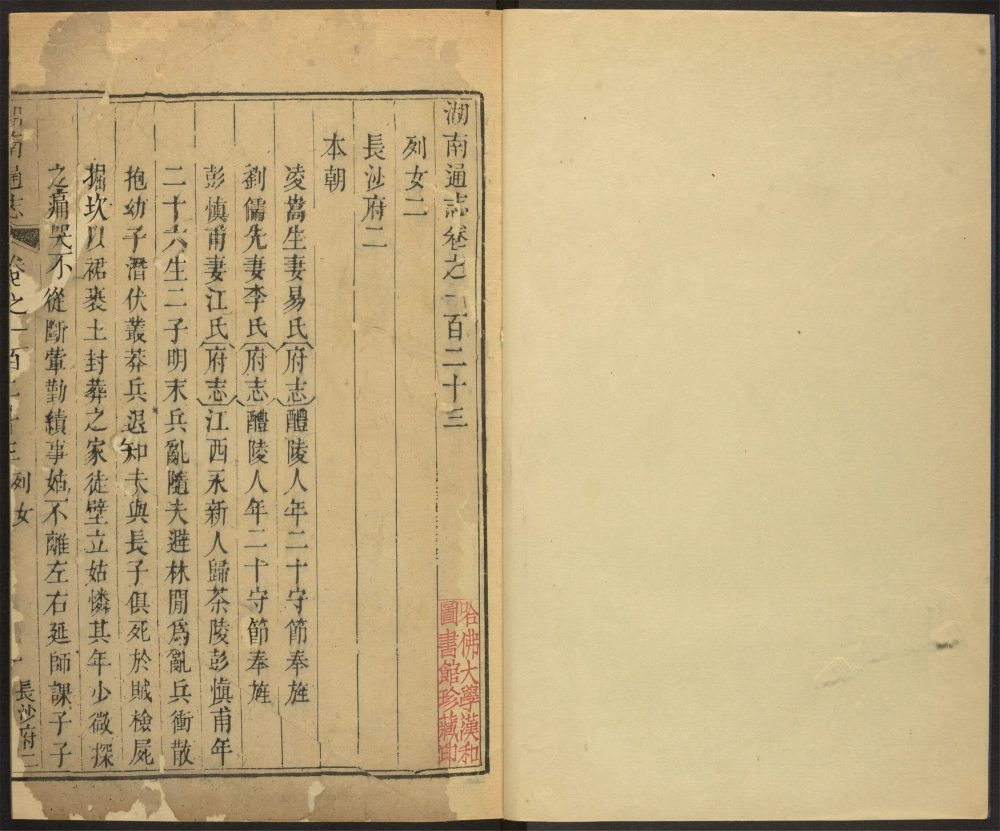 湖南通志卷之一百二十三
列女二
長沙府二
本朝
凌嵩生妻易氏〔府志〕醴陵人年二十守節奉旌
劉儒先妻李氏〔府志〕醴陵人年二十守節奉旌
彭慎甫妻江氏〔府志〕江西永新人歸茶陵彭慎甫年
二十六生二子明末兵亂隨夫避林間爲亂兵衝散
抱幼子潛伏叢莽兵退知夫與長子俱死於賊檢屍
掘坎以裙裹土封葬之家徒壁立姑憐其年少微探
之痛哭不從斷葷勤績事姑不離左右延師課子子
湖南通志 卷之一百二十三 列女 一 長沙府二
哈佛大學漢和
圖書館珍藏印